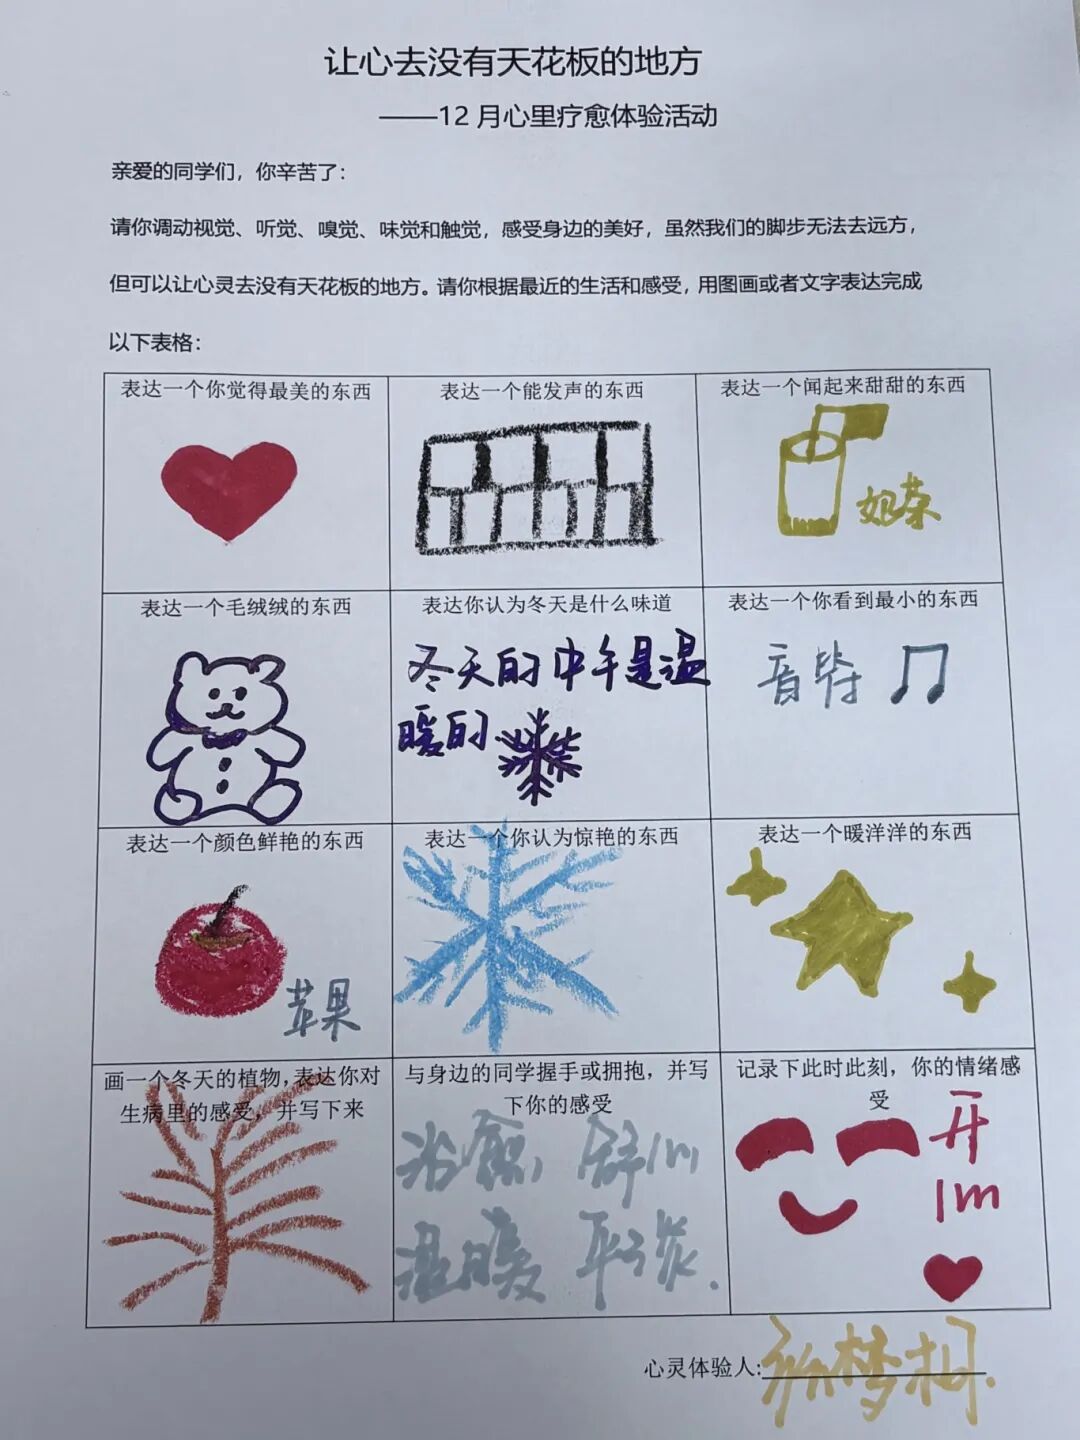 让心去没有天花板的地方
——12 月心里疗愈体验活动
亲爱的同学们，你辛苦了：
请你调动视觉、听觉、嗅觉、味觉和触觉，感受身边的美好，虽然我们的脚步无法去远方，
但可以让心灵去没有天花板的地方。请你根据最近的生活和感受，用图画或者文字表达完成
以下表格：
表达一个你觉得最美的东西
表达一个能发声的东西
表达一个闻起来甜甜的东西
奶茶
表达一个毛绒绒的东西
表达你认为冬天是什么味道
冬天的中午是温
暖的
表达一个你看到最小的东西
音符
表达一个颜色鲜艳的东西
苹果
表达一个你认为惊艳的东西
表达一个暖洋洋的东西
画一个冬天的植物，表达你对
生病里的感受，并写下来
与身边的同学握手或拥抱，并写
下你的感受
治愈, 舒心
温暖 平淡.
记录下此时此刻，你的情绪感
受
开
心
心灵体验人:
梦